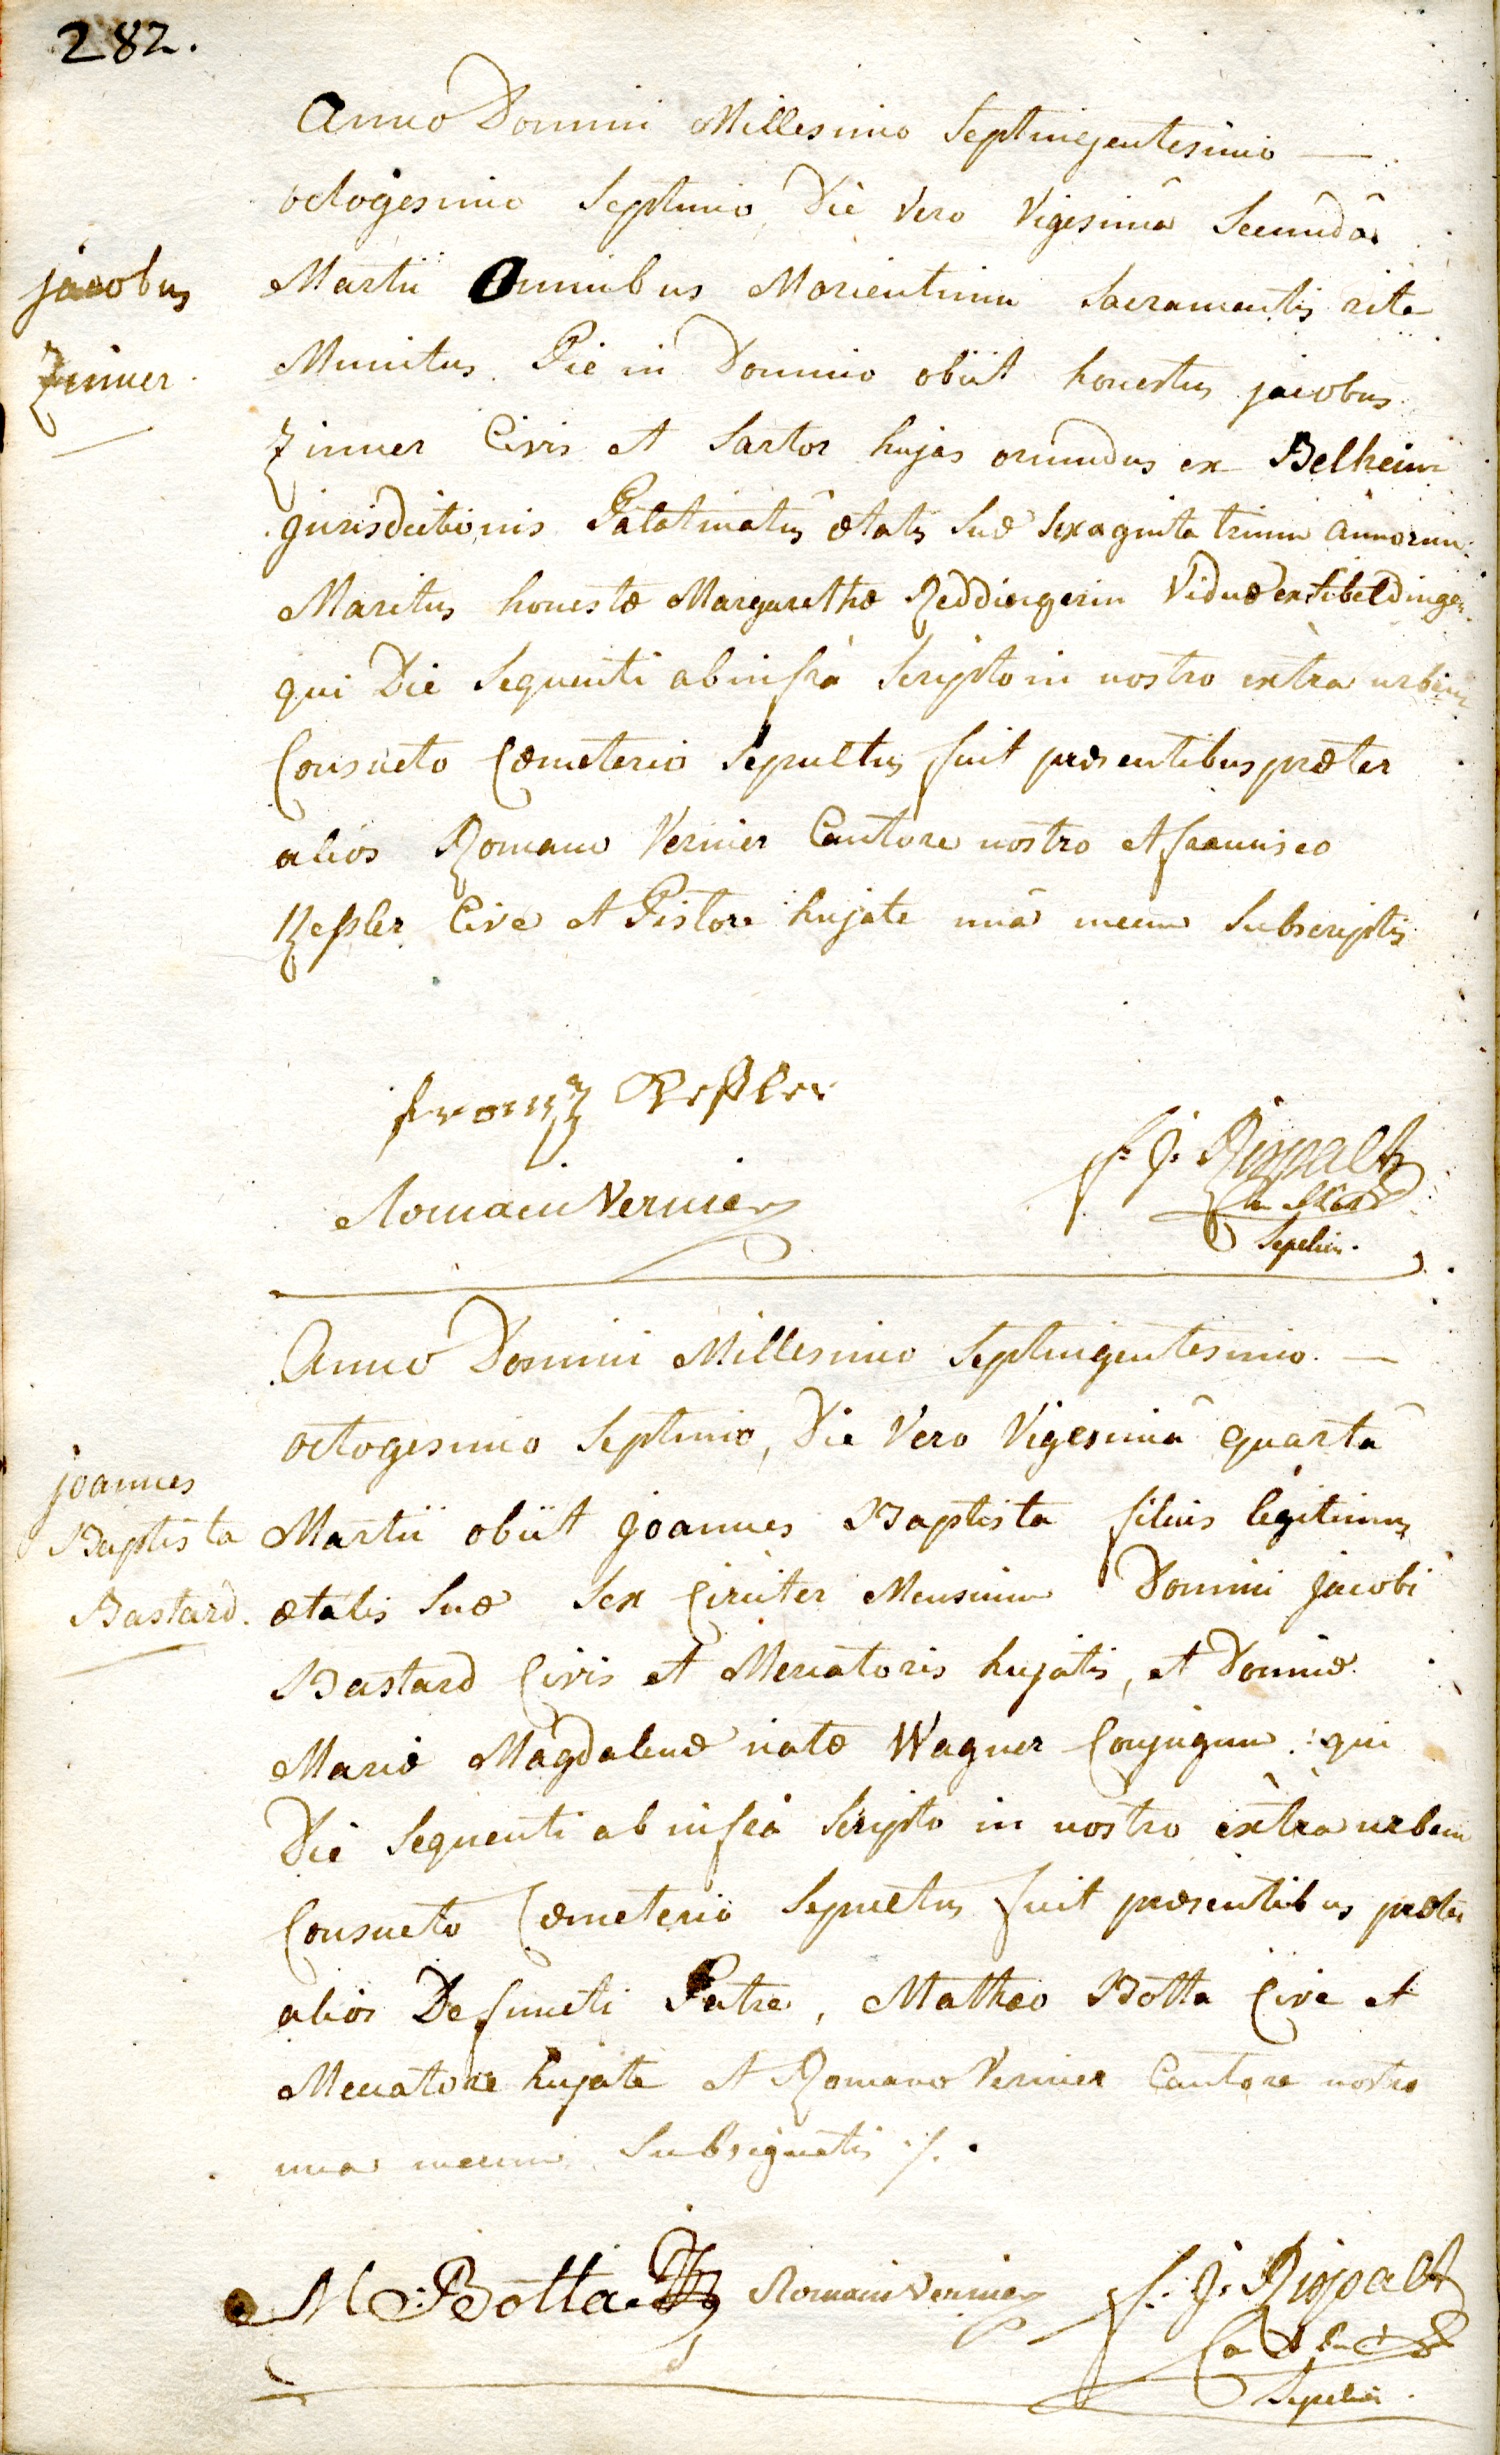 282.
Anno Domini Millesimo Septingentesimo —
octogesimo Septimo, Die Vero Vigesimâ Secundâ
jacobus
Zinner.
Martii Omnibus Morientium Sacramentis rite
Munitus Pie in Domino obiit honestus jacobus
Zinner Civis et Sartor hujas oriundus ex Belheim
jurisdictionis Palatinatûs ætatis Suæ Sexaginta trium annorum
Maritus honestæ Margarethæ Reddingerin Viduæ ex Sibeldingen
qui Die Sequenti ab infrà Scripto in nostro extra urbem
Consueto Cœmeterio Sepultus fuit præsentibus præter
alios Romano Vernier Cantore nostro et francisco
Keßler Cive et Pistore hujate unâ mecum Subscriptis
frantz Keßler
Romain Vernier
f: j: Rippalt
Sepelivi.
Anno Domini Millesimo Septingentesimo. —
octogesimo Septimo, Die Vero Vigesimâ quartâ
joannes
Baptista
Bastard.
Martii obiit joannes Baptista filius legitimus
ætatis Suæ Sex Circiter Mensium Domini jacobi
Bastard Civis et Mercatoris hujatis, et Domnæ
Mariæ Magdalenæ natæ Wagner Conjugum: qui
Die Sequenti ab infrà Scripto in nostro extra urbem
Consueto Cœmeterio Sepultus fuit præsentibus præter
alios Defuncti Patre, Matheo Botta Cive et
Mercatore hujate et Romano Vernier Cantore nostro
una mecum Subsignatis ./.
M Botta
Romain Vernier
f: j: Rippalt
Sepelivi.